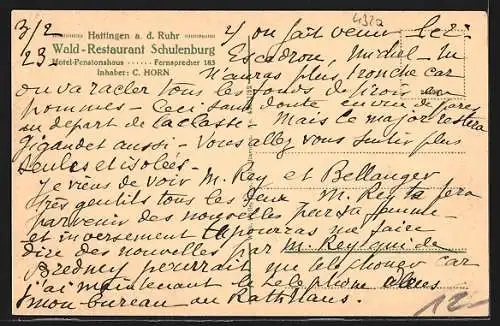 4320
3/2
23
Hattingen a. d. Ruhr
Wald-Restaurant Schulenburg
Hotel-Pensionshaus Fernsprecher 183
Inhaber: C. HORN
2/ on fait venir le 2e
Escadron, Michel - Tu
n'auras plus tronche car
on va racler tous les fonds de tiroir en
pommes - Ceci sans doute en vue de parer
au départ de la classe - Mais le major restera
Gigandet aussi - Vous allez vous sentir plus
seules et isolées -
Je viens de voir M. Rey et Bellanger
très gentils tous les deux M. Rey te fera
parvenir des nouvelles par sa femme -
et inversement tu pourras me faire
dire des nouvelles par M. Rey que de
pourrait me téléphoner car
j'ai maintenant le téléphone dans
mon bureau au Rathaus.
12-